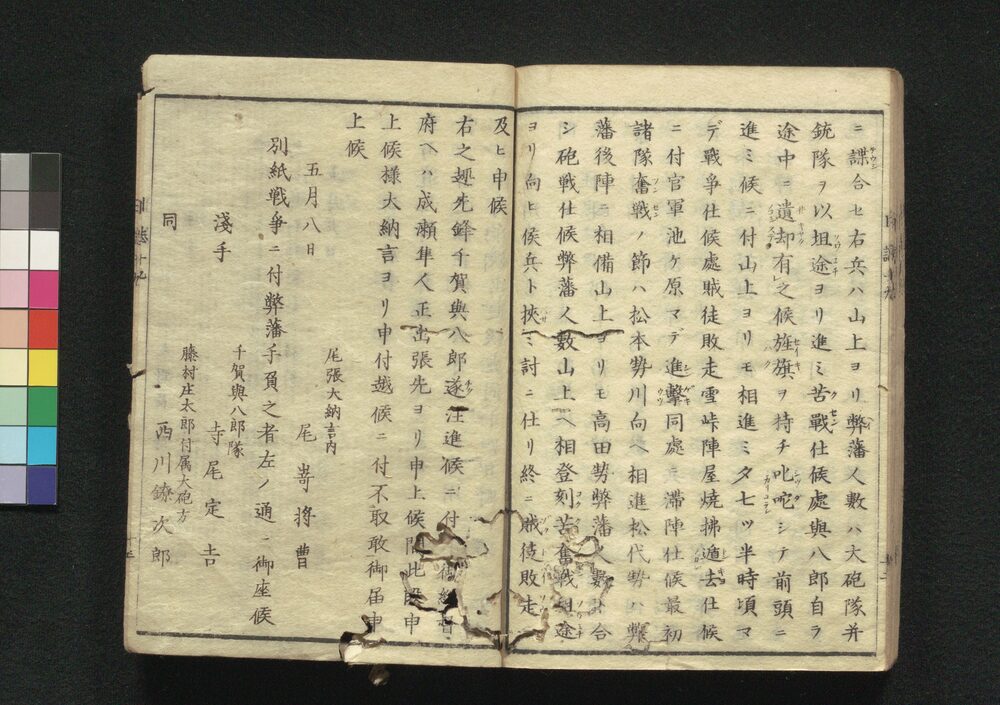 ニ諜合セ右兵ハ山上ヨリ弊藩人數ハ大砲隊并
銃隊ヲ以坦途ヨリ進ミ苦戰仕候處與八郎自ラ
途中ニ遺却有之候旌旗ヲ持チ叱咤シテ前頭ニ
進ミ候ニ付山上ヨリモ相進ミ夕七ツ半時頃マ
デ戰爭仕候處賊徒敗走雪峠陣屋焼拂遁去仕候
ニ付官軍池ケ原マデ進擊同處ニ滯陣仕候最初
諸隊奮戰ノ節ハ松本勢川向ヘ相進松代勢ハ弊
藩後陣ニ相備山上ヨリモ高田勢弊藩人數打合
シ砲戰仕候弊藩人數山上ヘ相登刻苦奮戰坦途
ヨリ向ヒ候兵ト挾ミ討ニ仕リ終ニ賊徒敗走ニ
及ヒ申候
右之趣先鋒千賀與八郎遂注進候ニ付
府ヘハ成瀬隼人正出張先ヨリ申上候間此段申
上候様大納言ヨリ申付越候ニ付不取敢御届申
上候
五月八日
尾張大納言内
尾嵜將曹
別紙戰爭ニ付弊藩手負之者左ノ通ニ御座候
千賀與八郎隊
淺手
寺尾定吉
藤村庄太郎付属大砲方
同
西川鐐次郎